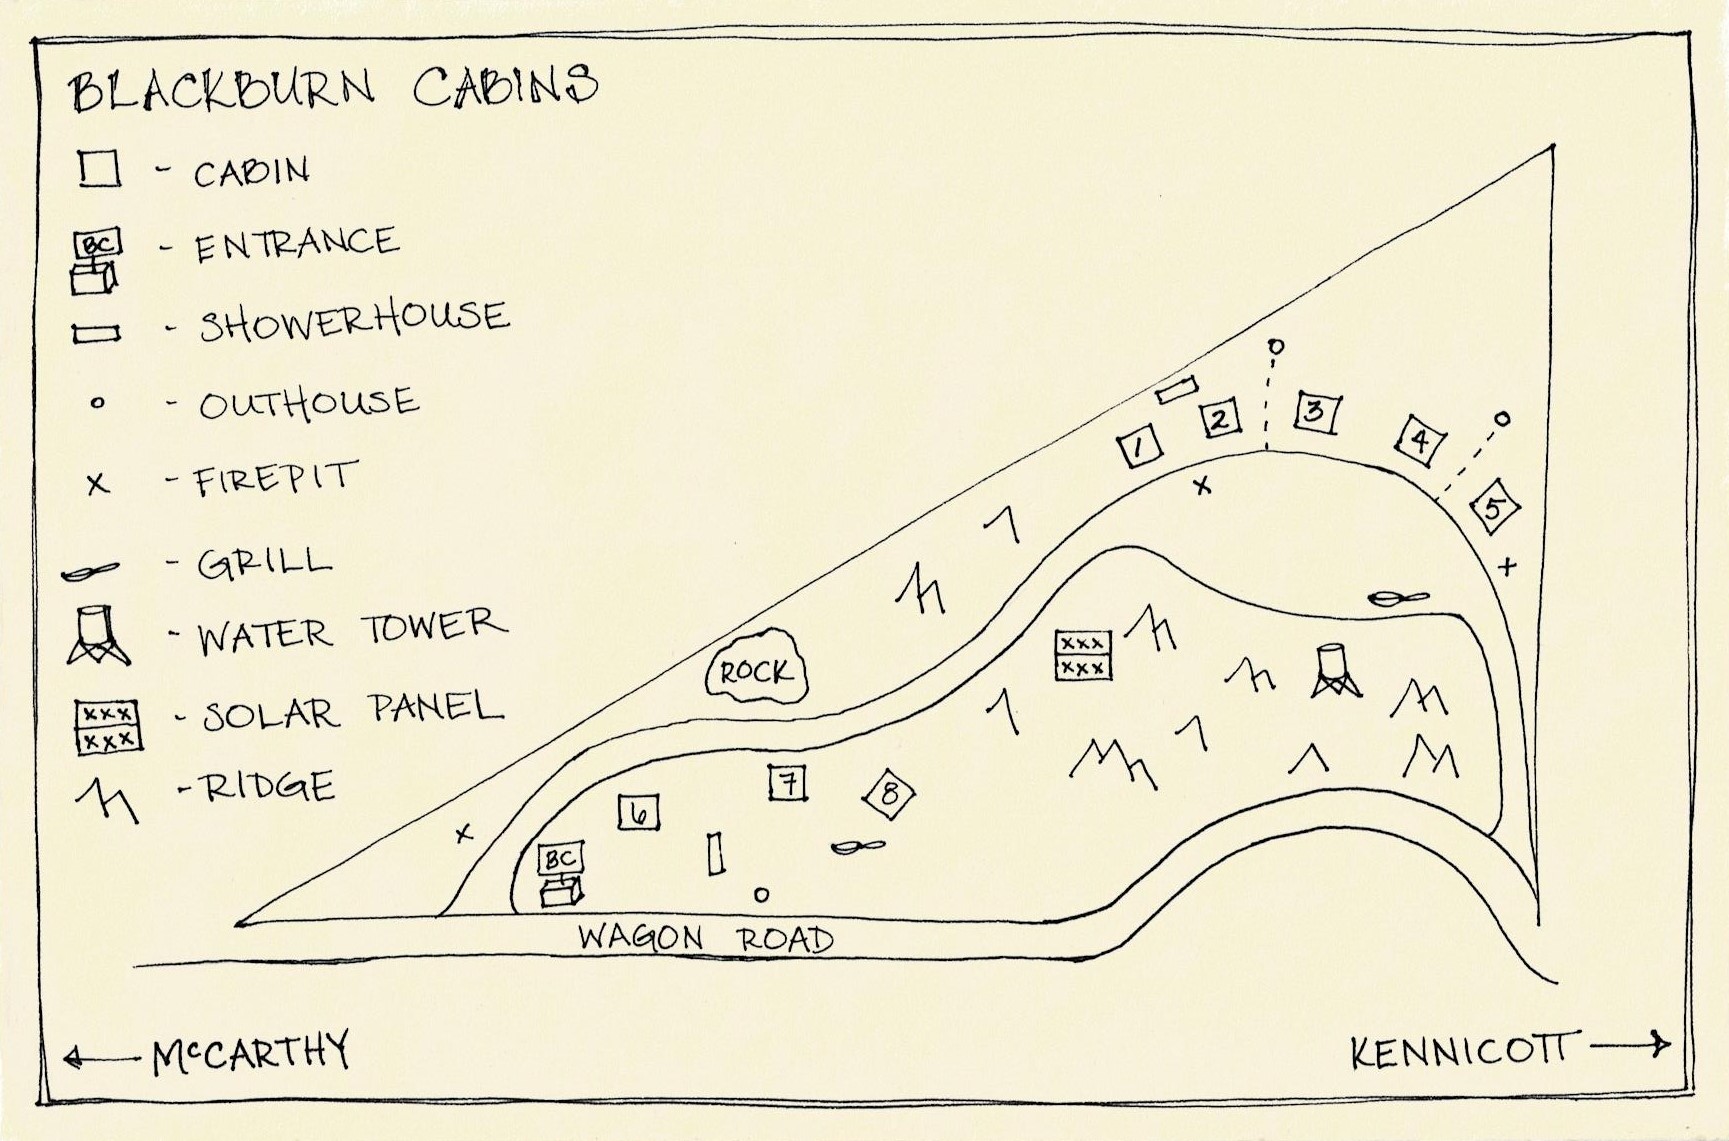 BLACKBURN CABINS
- CABIN
BC - ENTRANCE
- SHOWERHOUSE
- OUTHOUSE
x - FIREPIT
- GRILL
- WATER TOWER
xxx
xxx - SOLAR PANEL
- RIDGE
1
2
3
4
5
x
+
ROCK
xxx
xxx
7
8
6
x
BC
WAGON ROAD
← McCARTHY
KENNICOTT →